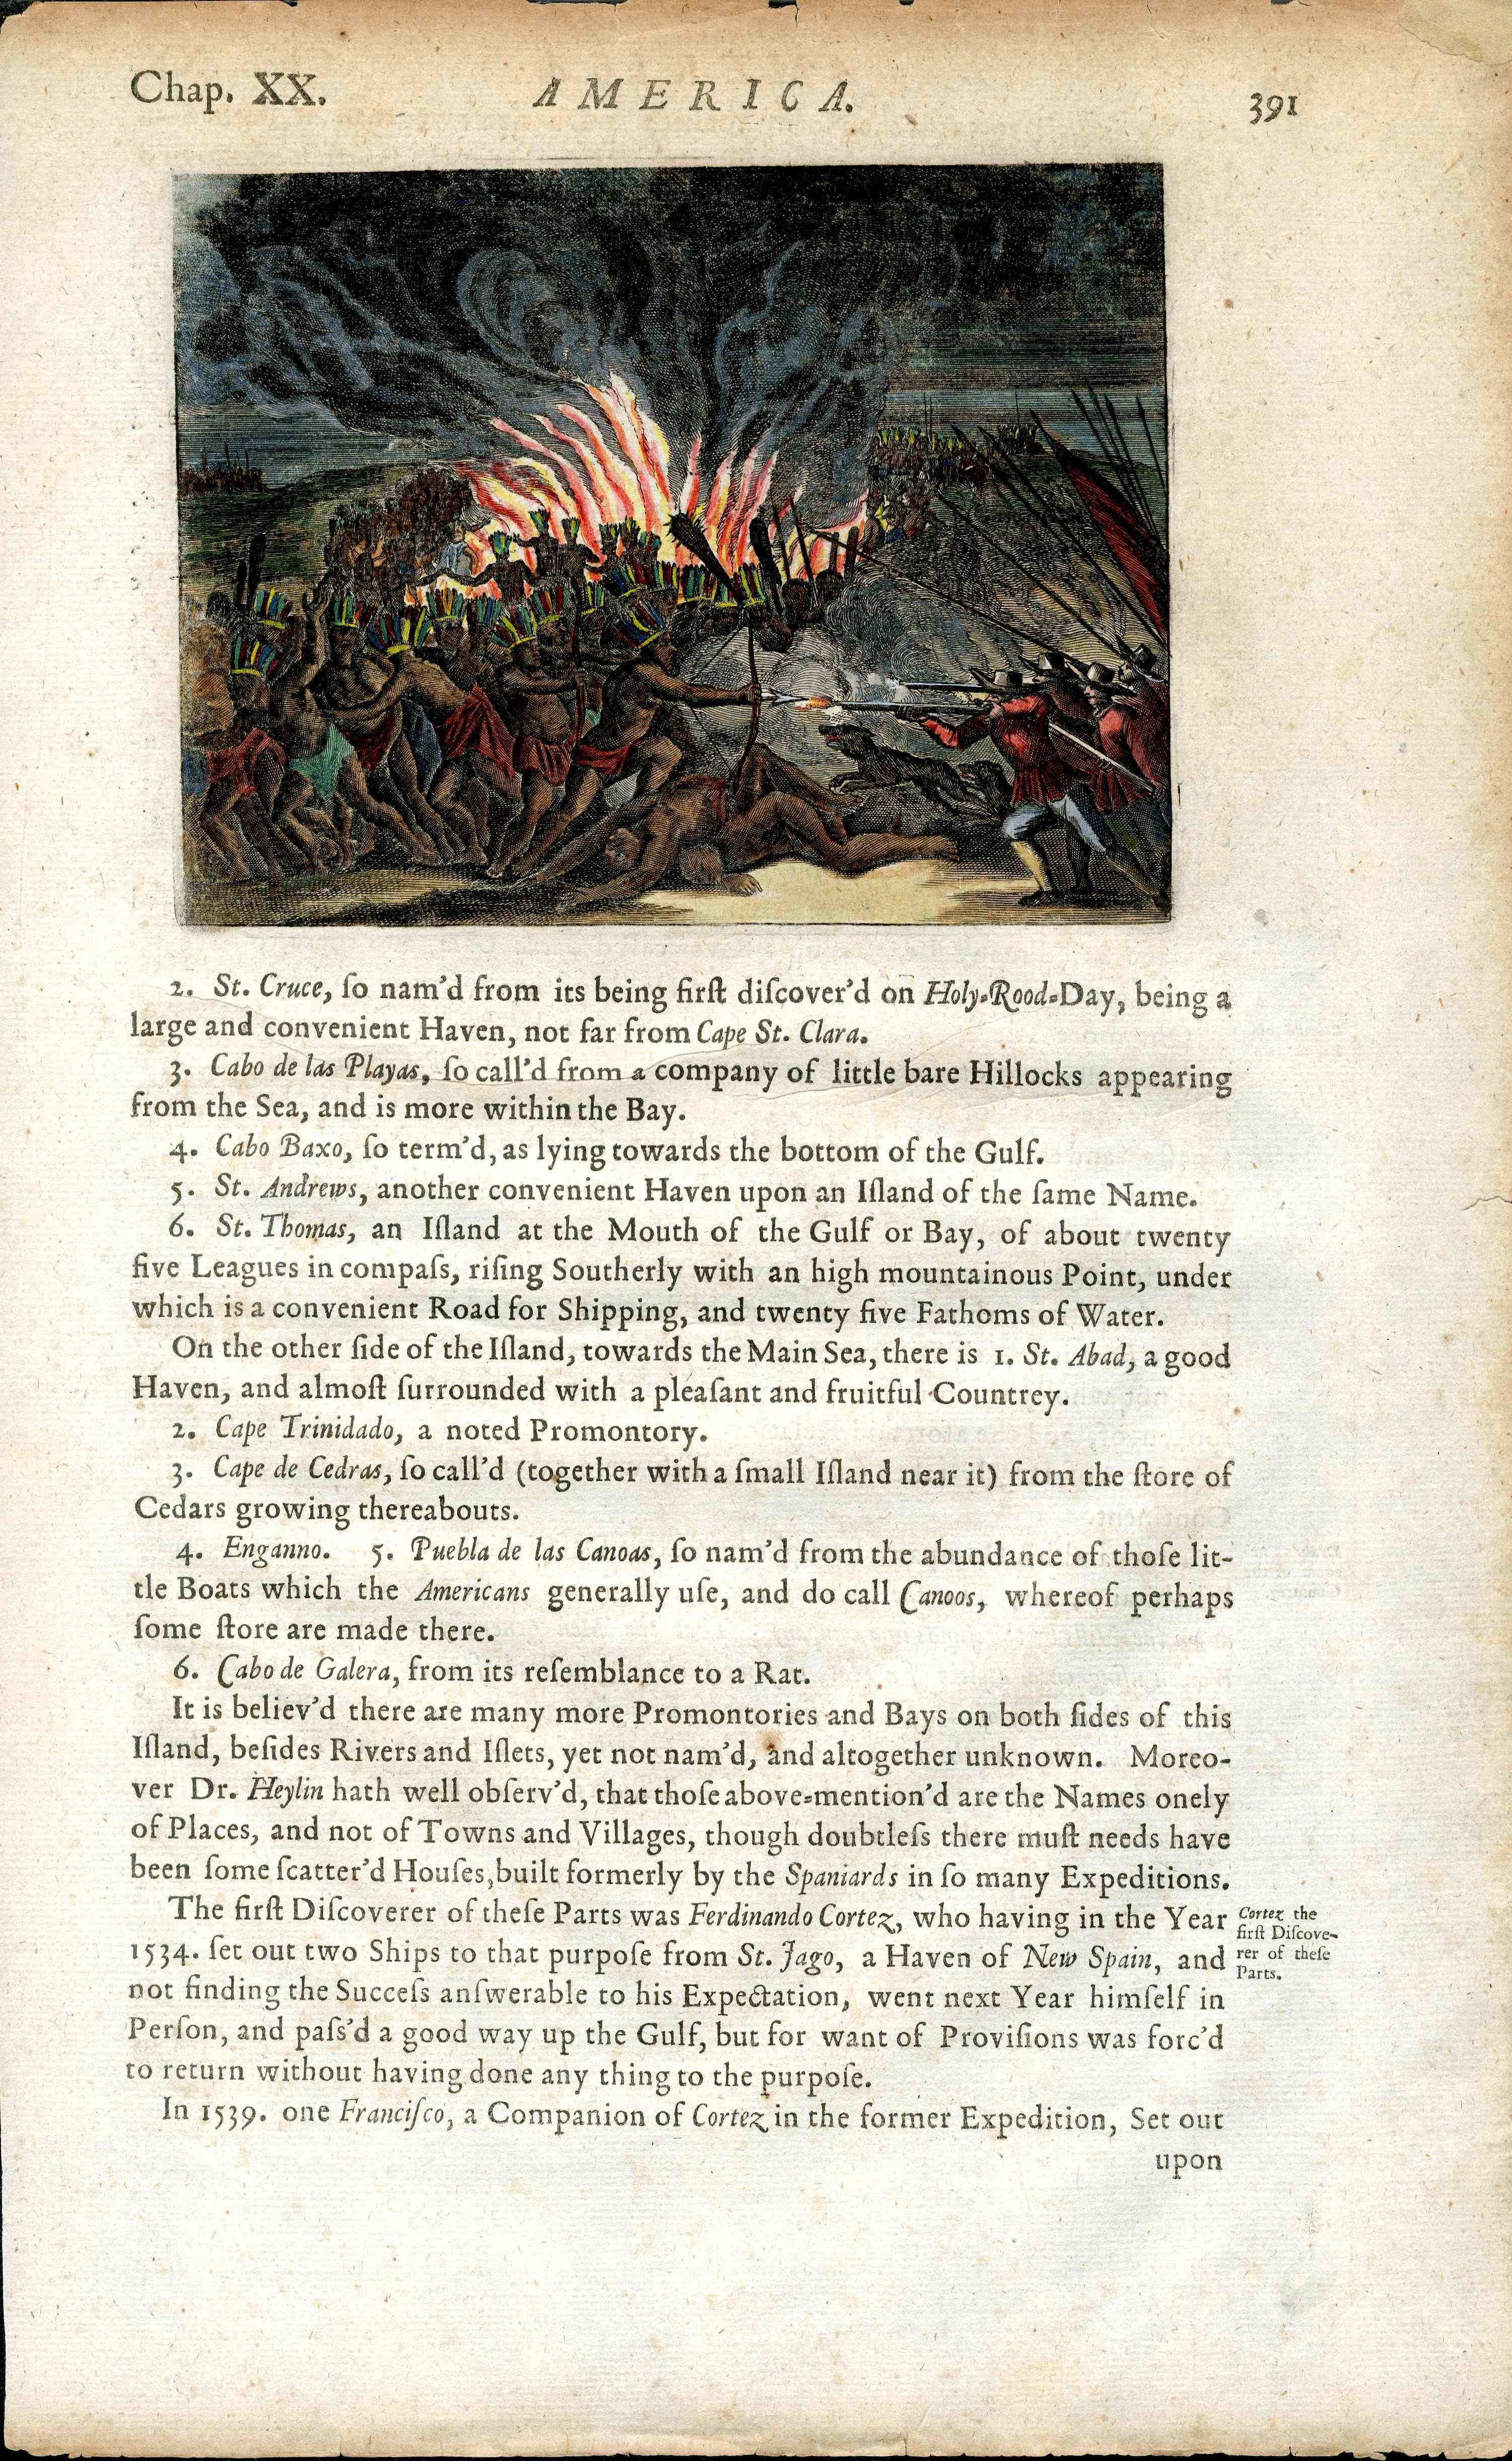 Chap. XX.
AMERICA.
391
2. St. Cruce, ſo nam'd from its being firſt diſcover'd on Holy-Rood-Day, being a
large and convenient Haven, not far from Cape St. Clara.
3. Cabo de las Playas, ſo call'd from a company of little bare Hillocks appearing
from the Sea, and is more within the Bay.
4. Cabo Baxo, ſo term'd, as lying towards the bottom of the Gulf.
5. St. Andrews, another convenient Haven upon an Iſland of the ſame Name.
6. St. Thomas, an Iſland at the Mouth of the Gulf or Bay, of about twenty
five Leagues in compaſs, riſing Southerly with an high mountainous Point, under
which is a convenient Road for Shipping, and twenty five Fathoms of Water.
On the other ſide of the Iſland, towards the Main Sea, there is 1. St. Abad, a good
Haven, and almoſt ſurrounded with a pleaſant and fruitful Countrey.
2. Cape Trinidado, a noted Promontory.
3. Cape de Cedras, ſo call'd (together with a ſmall Iſland near it) from the ſtore of
Cedars growing thereabouts.
4. Enganno. 5. Puebla de las Canoas, ſo nam'd from the abundance of thoſe lit-
tle Boats which the Americans generally uſe, and do call Canoos, whereof perhaps
ſome ſtore are made there.
6. Cabo de Galera, from its reſemblance to a Rat.
It is believ'd there are many more Promontories and Bays on both ſides of this
Iſland, beſides Rivers and Iſlets, yet not nam'd, and altogether unknown. Moreo-
ver Dr. Heylin hath well obſerv'd, that thoſe above-mention'd are the Names onely
of Places, and not of Towns and Villages, though doubtleſs there muſt needs have
been ſome ſcatter'd Houſes, built formerly by the Spaniards in ſo many Expeditions.
The firſt Diſcoverer of theſe Parts was Ferdinando Cortez, who having in the Year
1534. ſet out two Ships to that purpoſe from St. Jago, a Haven of New Spain, and
not finding the Succeſs anſwerable to his Expectation, went next Year himſelf in
Perſon, and paſs'd a good way up the Gulf, but for want of Proviſions was forc'd
to return without having done any thing to the purpoſe.
Cortez the
firſt Diſcove-
rer of theſe
Parts.
In 1539. one Franciſco, a Companion of Cortez in the former Expedition, Set out
upon